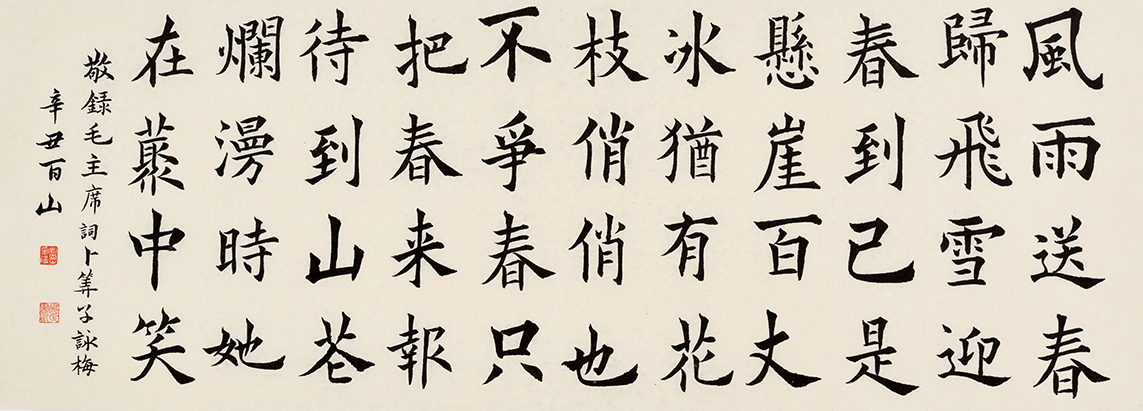 風雨送春
歸飛雪迎
春到已是
懸崖百丈
冰猶有花
枝俏俏也
不爭春只
把春来報
待到山芲
爛漫時她
在藂中笑
敬録毛主席詞卜筭子詠梅
辛丑百山